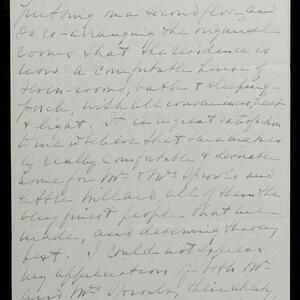 putting on a second floor, and
so re-arranging the original
rooms that the residence is
now a comfortable house of
seven-rooms, bath & sleeping-
porch, with all conveniences, heat
& light. It is a great satisfaction
to me to believe that this makes
a really comfortable &
home for Mr & Mrs and
little Willard all of them the
very finest people that are
made, and deserving the very
best. I could not express
my appreciation of both Mr
and Mrs